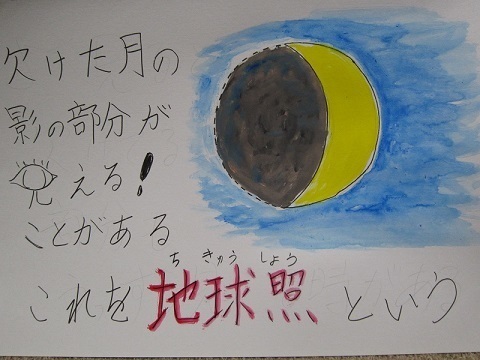 欠けた月の
影の部分が
見える!
ことがある
ちきゅうしょう
これを地球照という